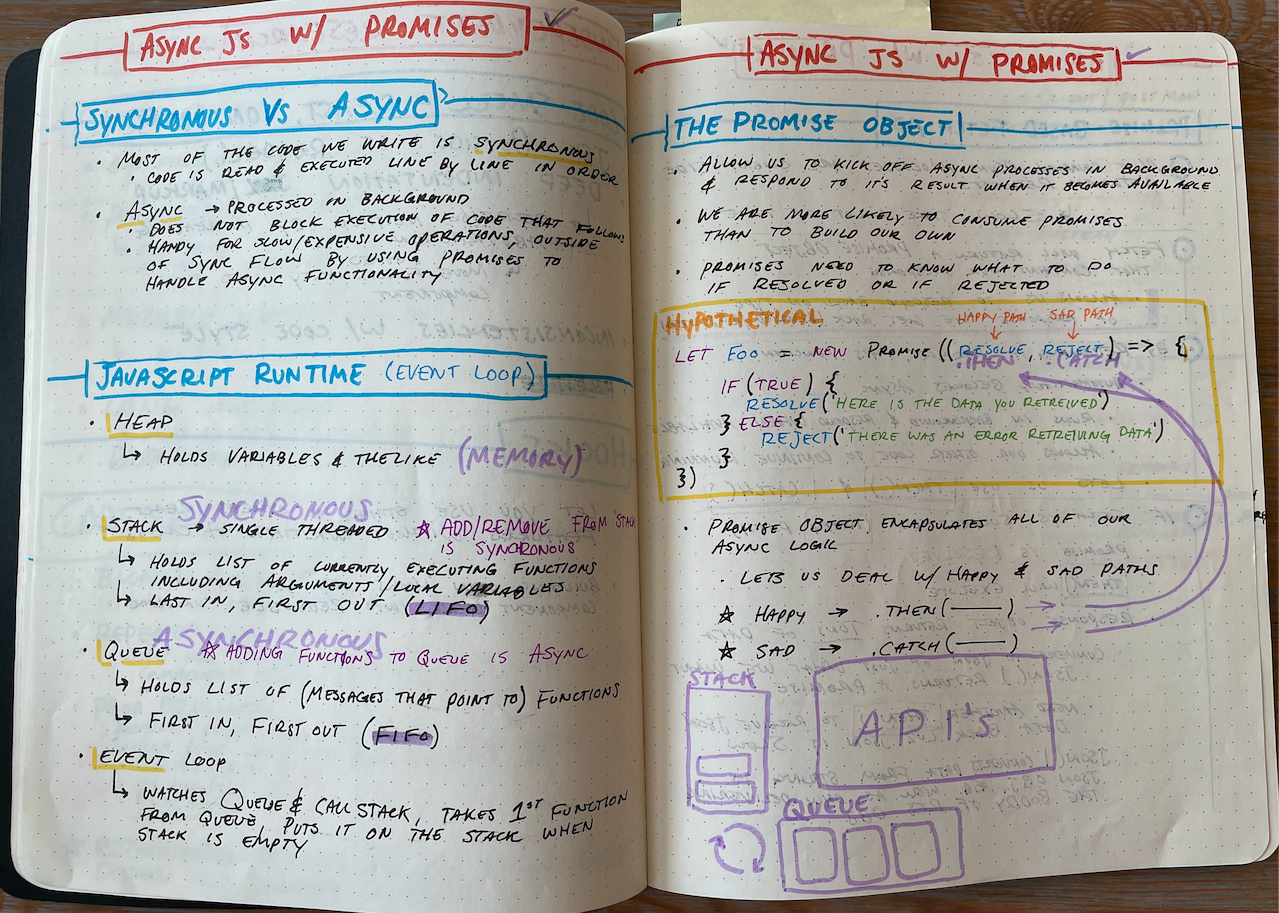 ASYNC JS W/ PROMISES
SYNCHRONOUS VS ASYNC
• MOST OF THE CODE WE WRITE IS SYNCHRONOUS
• CODE IS READ & EXECUTED LINE BY LINE IN ORDER
• ASYNC → PROCESSED IN BACKGROUND
• DOES NOT BLOCK EXECUTION OF CODE THAT FOLLOWS
• HANDY FOR SLOW/EXPENSIVE OPERATIONS, OUTSIDE
OF SYNC FLOW BY USING PROMISES TO
HANDLE ASYNC FUNCTIONALITY
JAVASCRIPT RUNTIME (EVENT LOOP)
• HEAP
↳ HOLDS VARIABLES & THE LIKE (MEMORY)
SYNCHRONOUS
• STACK → SINGLE THREADED ☆ ADD/REMOVE FROM STACK
IS SYNCHRONOUS
↳ HOLDS LIST OF CURRENTLY EXECUTING FUNCTIONS
INCLUDING ARGUMENTS/LOCAL VARIABLES
↳ LAST IN, FIRST OUT (LIFO)
ASYNCHRONOUS
• QUEUE ☆ ADDING FUNCTIONS TO QUEUE IS ASYNC
↳ HOLDS LIST OF (MESSAGES THAT POINT TO) FUNCTIONS
↳ FIRST IN, FIRST OUT (FIFO)
• EVENT LOOP
↳ WATCHES QUEUE & CALL STACK, TAKES 1ST FUNCTION
FROM QUEUE PUTS IT ON THE STACK WHEN
STACK IS EMPTY
ASYNC JS W/ PROMISES
THE PROMISE OBJECT
• ALLOW US TO KICK OFF ASYNC PROCESSES IN BACKGROUND
& RESPOND TO IT'S RESULT WHEN IT BECOMES AVAILABLE
• WE ARE MORE LIKELY TO CONSUME PROMISES
THAN TO BUILD OUR OWN
• PROMISES NEED TO KNOW WHAT TO DO
IF RESOLVED OR IF REJECTED
HYPOTHETICAL
HAPPY PATH SAD PATH
LET FOO = NEW PROMISE((RESOLVE, REJECT) => {
.THEN .CATCH
IF (TRUE) {
RESOLVE('HERE IS THE DATA YOU RETREIVED')
} ELSE {
REJECT('THERE WAS AN ERROR RETREIVING DATA')
}
})
• PROMISE OBJECT ENCAPSULATES ALL OF OUR
ASYNC LOGIC
• LETS US DEAL W/ HAPPY & SAD PATHS
☆ HAPPY → .THEN(——)
☆ SAD → .CATCH(——)
STACK
API'S
QUEUE